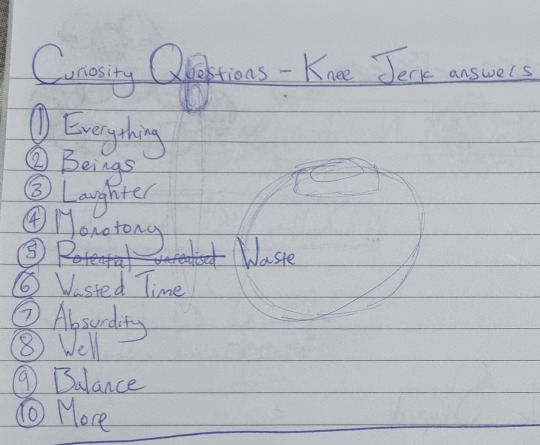 Curiosity Questions - Knee Jerk answers
① Everything
② Beings
③ Laughter
④ Monotony
⑤ Potential unrealised Waste
⑥ Wasted Time
⑦ Absurdity
⑧ Well
⑨ Balance
⑩ More